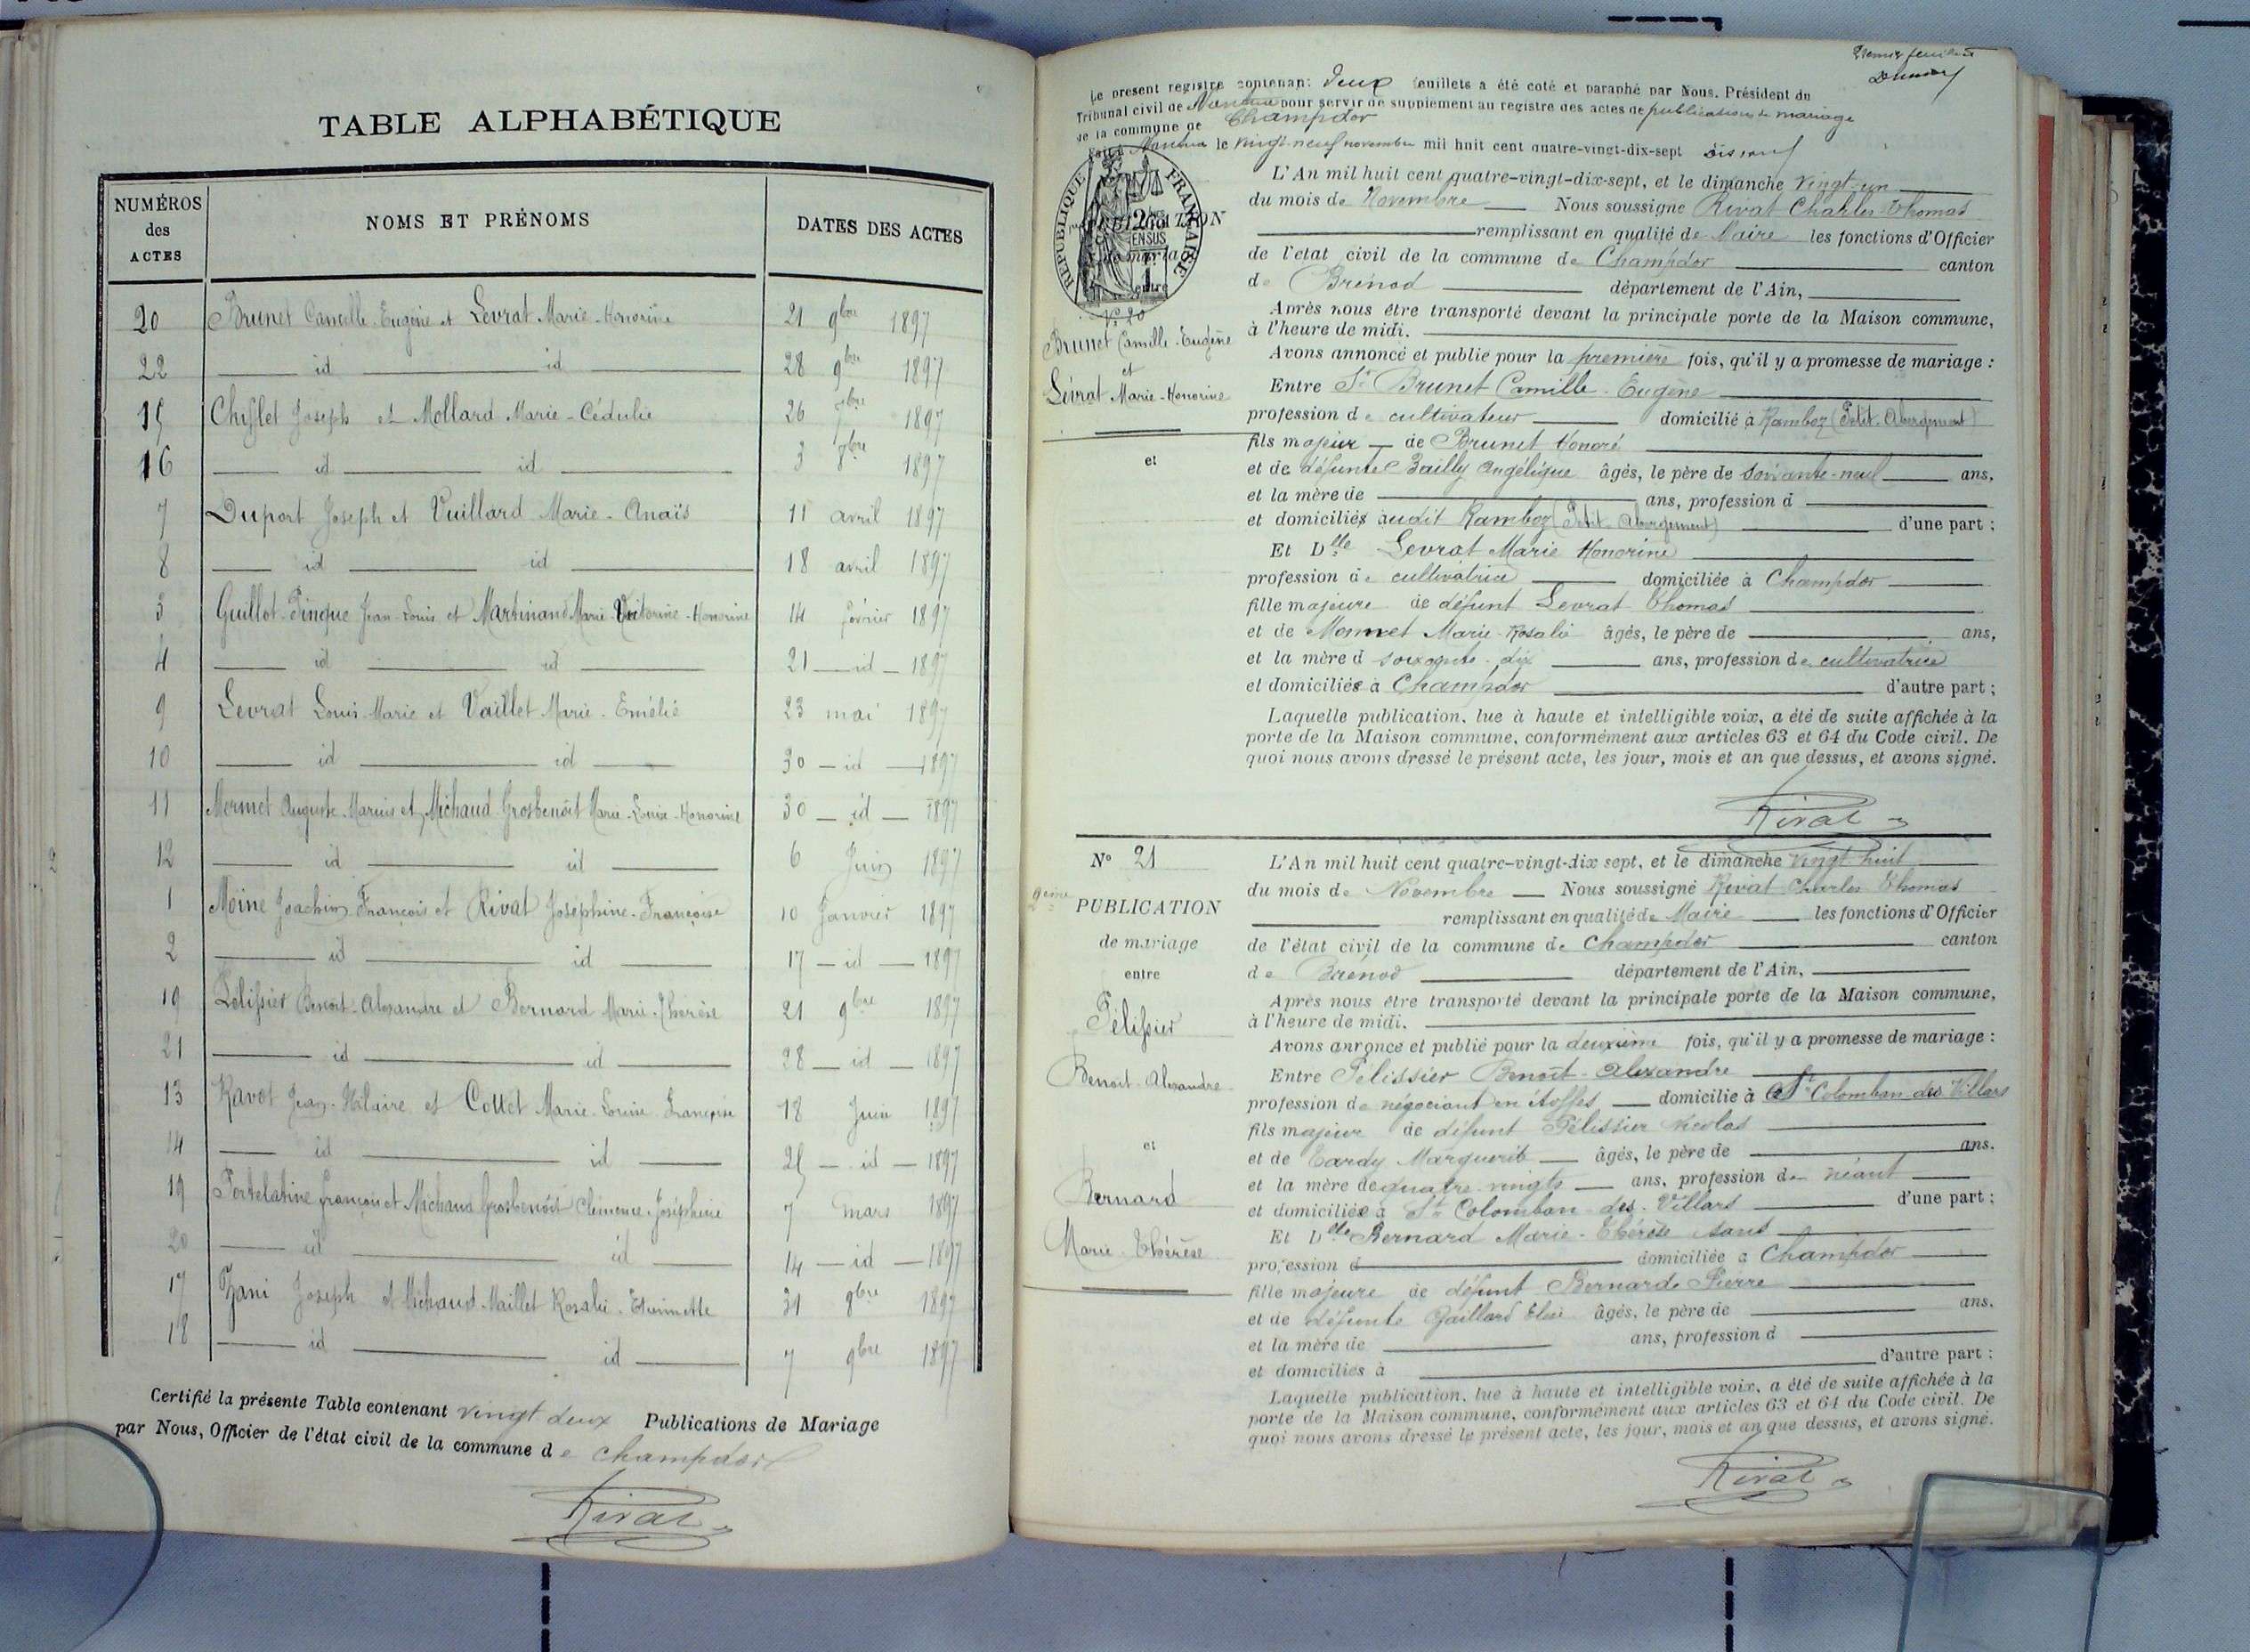 TABLE ALPHABÉTIQUE
NUMÉROS des ACTES
NOMS ET PRÉNOMS
DATES DES ACTES
20 Brunet Camille-Eugène et Levrat Marie-Honorine 21 9bre 1897
22 id id 28 9bre 1897
15 Chifflet Joseph et Mollard Marie-Cédulie 26 7bre 1897
16 id id 3 8bre 1897
7 Duport Joseph et Vuillard Marie-Anaïs 11 avril 1897
8 id id 18 avril 1897
3 Guillot-Pingue Jean-Louis et Martinand Marie-Victorine-Honorine 14 février 1897
4 id id 21 id 1897
9 Levrat Louis-Marie et Vaillet Marie-Emélie 23 mai 1897
10 id id 30 id 1897
11 Mermet Auguste-Marius et Michaud-Grosbenoît Marie-Louise-Honorine 30 id 1897
12 id id 6 Juin 1897
1 Moine Joachim François et Rivat Joséphine-Françoise 10 Janvier 1897
2 id id 17 id 1897
19 Pélissier Benoit-Alexandre et Bernard Marie-Thérèse 21 9bre 1897
21 id id 28 id 1897
13 Ravot Jean-Hilaire et Cottet Marie-Louise Françoise 18 Juin 1897
14 id id 25 id 1897
19 Portelatine François et Michaud Grosbenoît Clémence-Joséphine 7 mars 1897
20 id id 14 id 1897
17 Zani Joseph et Michaud-Maillet Rosalie-Etiennette 31 8bre 1897
18 id id 7 9bre 1897
Certifié la présente Table contenant vingt deux Publications de Mariage
par Nous, Officier de l'état civil de la commune de Champdor
Rivat
Premier feuillet
Le présent registre contenant deux feuillets a été coté et paraphé par Nous, Président du
Tribunal civil de Nantua pour servir de supplément au registre des actes de publications de mariage
de la commune de Champdor
Fait à Nantua le vingt-neuf novembre mil huit cent quatre-vingt-dix-sept
RÉPUBLIQUE FRANÇAISE
PUBLICATION
de mariage
entre
N° 20
Brunet Camille-Eugène
et
Levrat Marie-Honorine
et
L'An mil huit cent quatre-vingt-dix-sept, et le dimanche vingt-un
du mois de Novembre Nous soussigné Rivat Charles Thomas
remplissant en qualité de Maire les fonctions d'Officier
de l'état civil de la commune de Champdor canton
de Brénod département de l'Ain,
Après nous être transporté devant la principale porte de la Maison commune,
à l'heure de midi.
Avons annoncé et publié pour la première fois, qu'il y a promesse de mariage :
Entre Sr Brunet Camille-Eugène
profession de cultivateur domicilié à Ramboz (Petit-Abergement)
fils majeur de Brunet Honoré
et de défunte Bailly Angélique âgés, le père de soixante-neuf ans,
et la mère de ans, profession d
et domiciliés audit Ramboz (Petit-Abergement) d'une part ;
Et Delle Levrat Marie Honorine
profession de cultivatrice domiciliée à Champdor
fille majeure de défunt Levrat Thomas
et de Monnet Marie-Rosalie âgés, le père de ans,
et la mère d soixante-dix ans, profession de cultivatrice
et domiciliés à Champdor d'autre part ;
Laquelle publication, lue à haute et intelligible voix, a été de suite affichée à la
porte de la Maison commune, conformément aux articles 63 et 64 du Code civil. De
quoi nous avons dressé le présent acte, les jour, mois et an que dessus, et avons signé.
Rivat
N° 21
2ème PUBLICATION
de mariage
entre
Pélissier
Benoit-Alexandre
et
Bernard
Marie-Thérèse
L'An mil huit cent quatre-vingt-dix sept, et le dimanche vingt huit
du mois de Novembre Nous soussigné Rivat Charles Thomas
remplissant en qualité de Maire les fonctions d'Officier
de l'état civil de la commune de Champdor canton
de Brénod département de l'Ain,
Après nous être transporté devant la principale porte de la Maison commune,
à l'heure de midi.
Avons annoncé et publié pour la deuxième fois, qu'il y a promesse de mariage :
Entre Pélissier Benoit-Alexandre
profession de négociant en étoffes domicilié à St Colomban-des Villars
fils majeur de défunt Pélissier Nicolas
et de Tardy Marguerite âgés, le père de ans.
et la mère de quatre-vingts ans, profession de néant
et domiciliée à St Colomban-des-Villars d'une part ;
Et Delle Bernard Marie-Thérèse sans
profession d domiciliée à Champdor
fille majeure de défunt Bernard Pierre
et de défunte Gaillard Elise âgés, le père de ans.
et la mère de ans, profession d
et domiciliés à d'autre part ;
Laquelle publication, lue à haute et intelligible voix, a été de suite affichée à la
porte de la Maison commune, conformément aux articles 63 et 64 du Code civil. De
quoi nous avons dressé le présent acte, les jour, mois et an que dessus, et avons signé.
Rivat